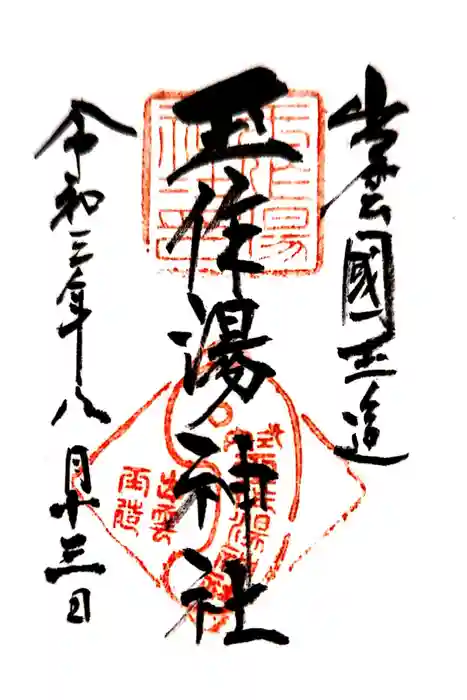 出雲國玉造
玉作湯神社
令和三年八月十三日
出雲
玉造